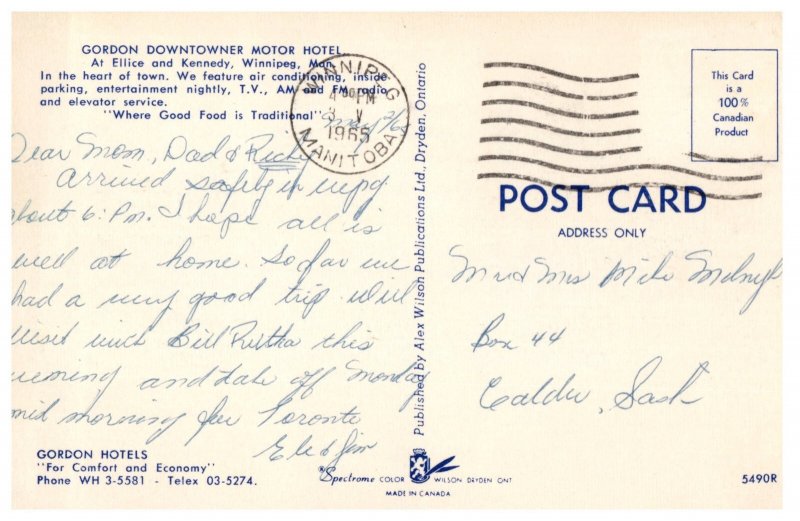 GORDON DOWNTOWNER MOTOR HOTEL
At Ellice and Kennedy, Winnipeg, Man.
In the heart of town. We feature air conditioning, inside
parking, entertainment nightly, T.V., AM and FM radio
and elevator service.
"Where Good Food is Traditional"
WINNIPEG
4 30 PM
3 V
1965
MANITOBA
May 2/65
Dear Mom, Dad & Ricky
Arrived safely in wpg
about 6: Pm. I hope all is
well at home. So far we
had a very good trip. Will
visit with Bill this
evening and take off Monday
mid morning for Toronto
Jim
GORDON HOTELS
"For Comfort and Economy"
Phone WH 3-5581 - Telex 03-5274.
Published by Alex Wilson Publications Ltd., Dryden, Ontario
This Card
is a
100%
Canadian
Product
POST CARD
ADDRESS ONLY
Mr & Mrs Mike
Box 44
Calder, Sask
Spectrome COLOR WILSON DRYDEN ONT
MADE IN CANADA
5490R